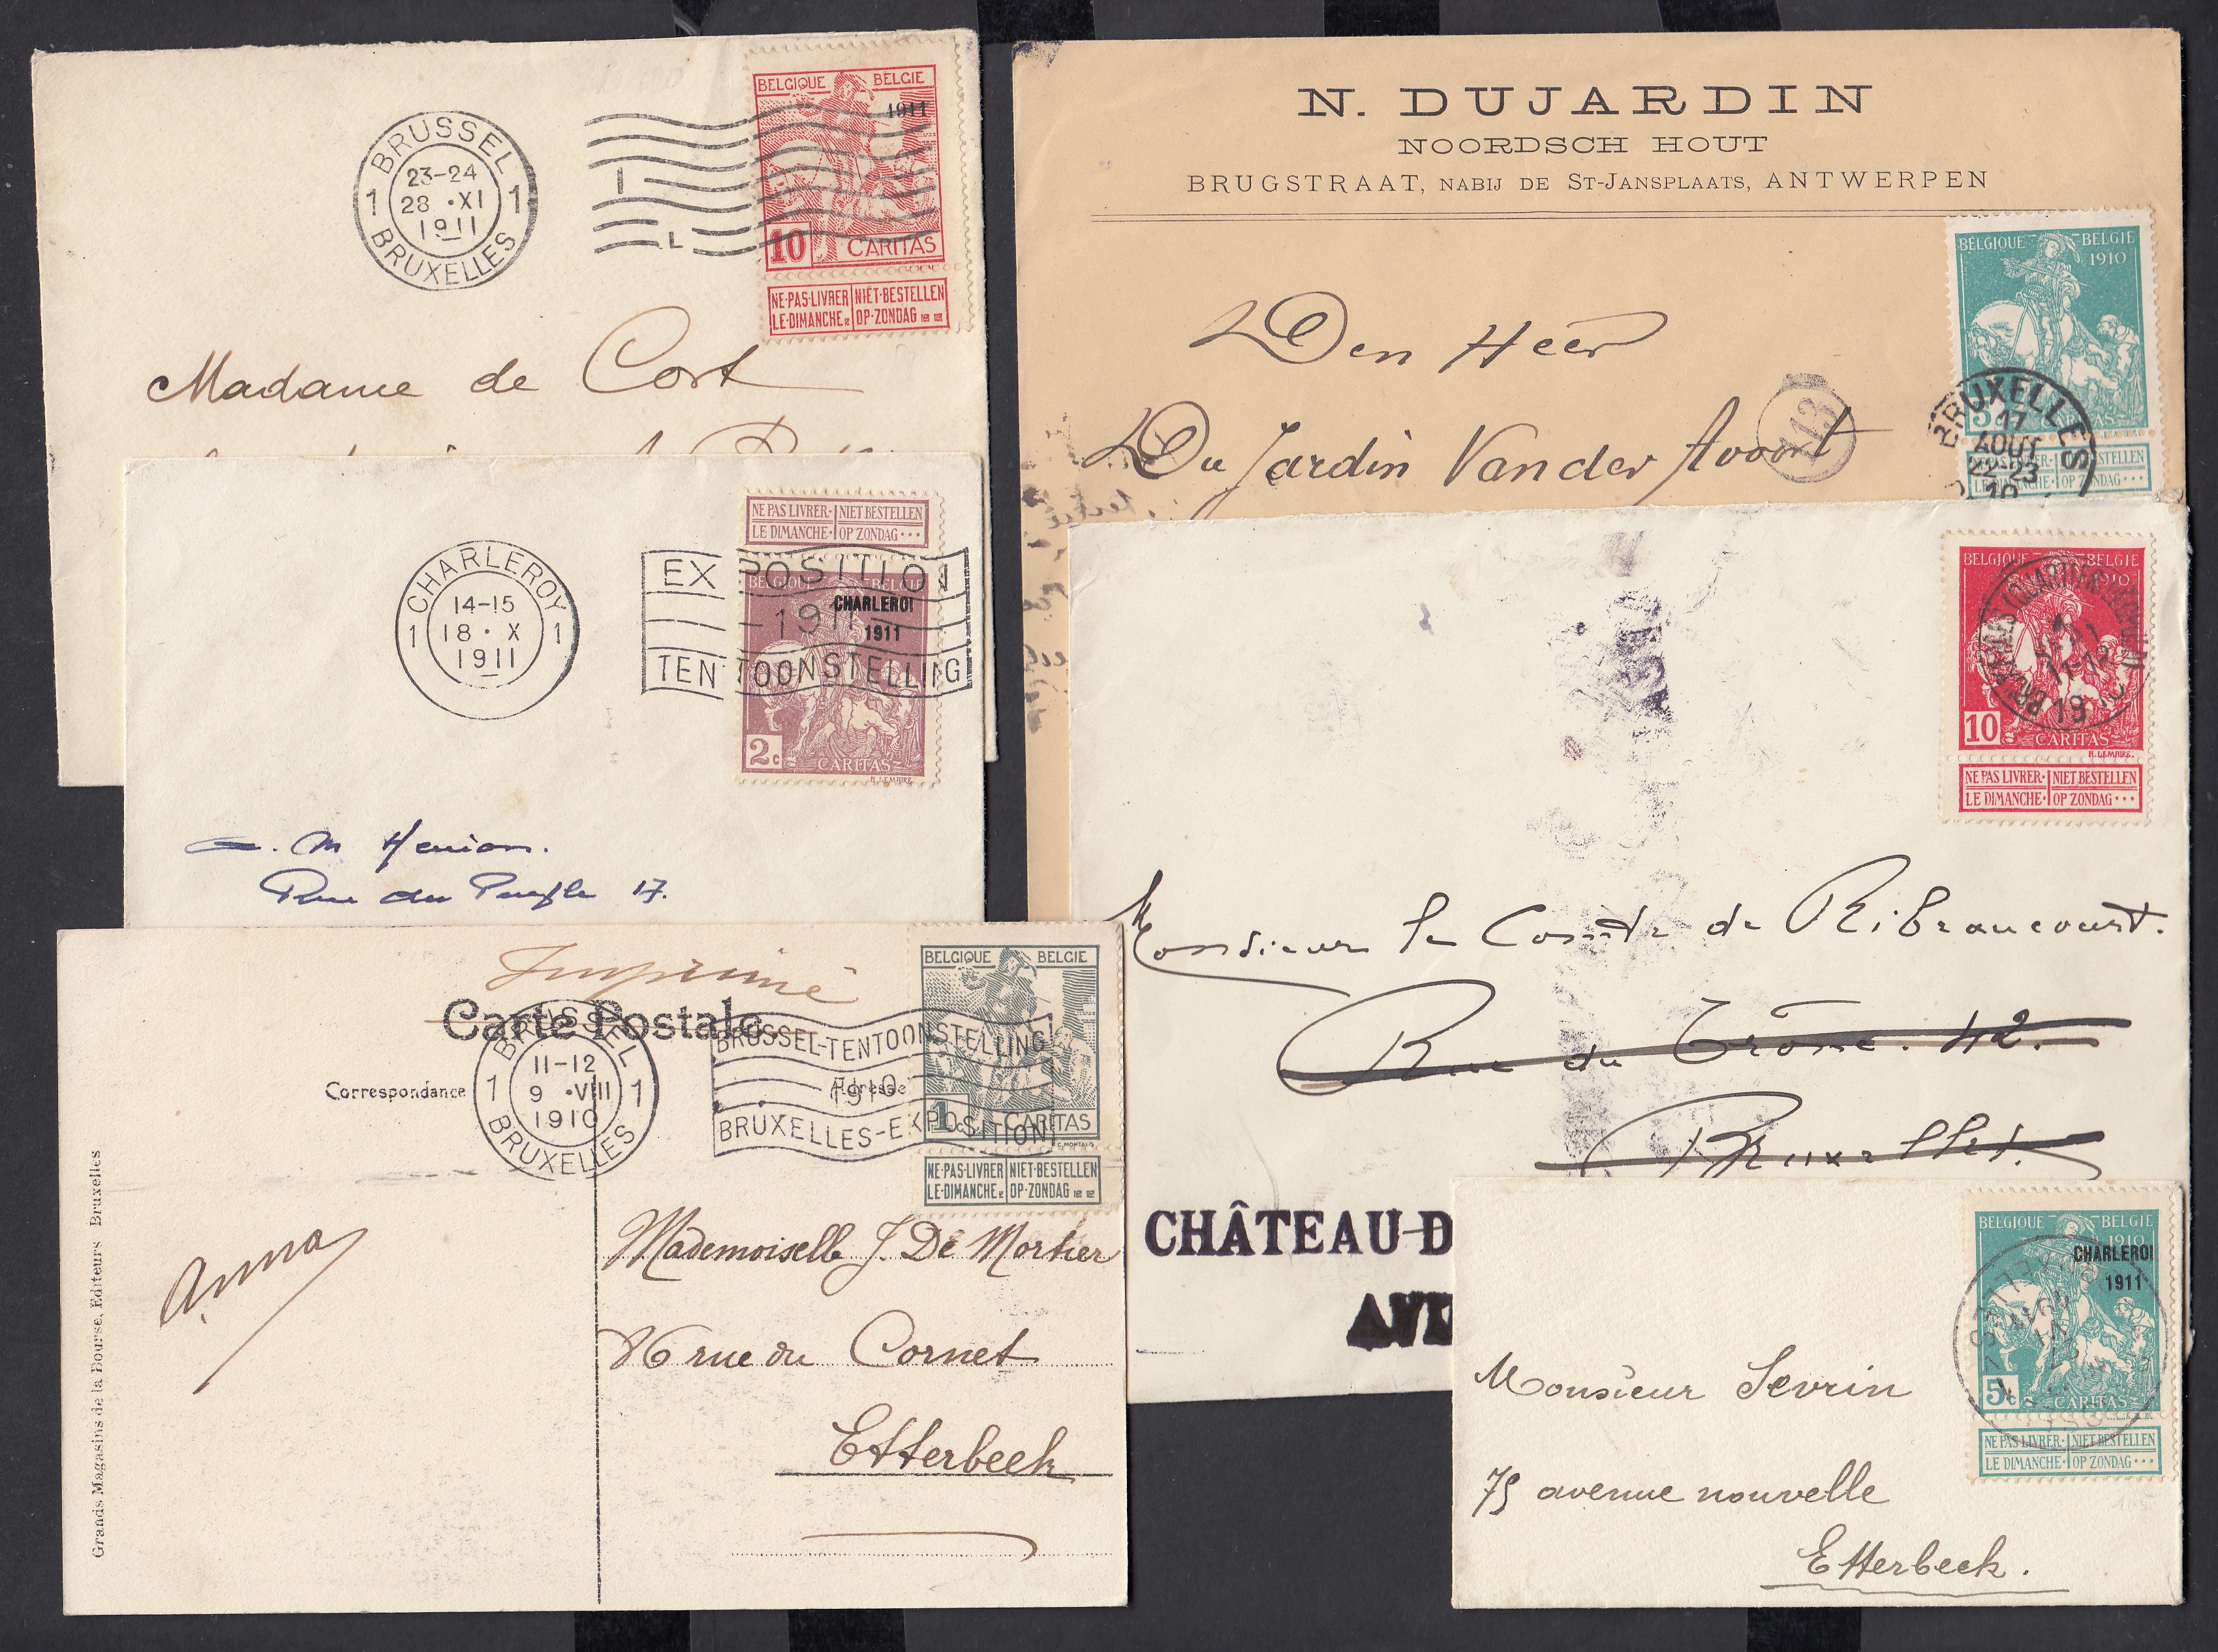 BELGIQUE BELGIE
1911
10 CARITAS
NE·PAS·LIVRER NIET·BESTELLEN
LE·DIMANCHE OP·ZONDAG
BRUSSEL
23-24
1 28 •XI 1
1911
BRUXELLES
Madame de Cort
N. DUJARDIN
NOORDSCH HOUT
BRUGSTRAAT, NABIJ DE ST-JANSPLAATS, ANTWERPEN
BELGIQUE BELGIE
1910
5c CARITAS
NE PAS LIVRER· NIET BESTELLEN
LE DIMANCHE· OP ZONDAG···
BRUXELLES
17
AOUT
22-23
10
Den Heer
Du Jardin Van der Avoort
NE PAS LIVRER· NIET BESTELLEN
LE DIMANCHE· OP ZONDAG···
BELGIQUE BELGIE
CHARLEROI
1911
2c CARITAS
H.LEMAIRE.
CHARLEROY
14-15
1 18 · X 1
1911
EXPOSITION
1911
TENTOONSTELLING
M Henion.
Rue du Peuple 17.
BELGIQUE BELGIE
1910
10c CARITAS
H.LEMAIRE.
NE PAS LIVRER· NIET BESTELLEN
LE DIMANCHE· OP ZONDAG···
11-12
19
Monsieur le Comte de Ribeaucourt.
Rue du Trône. 42.
Bruxelles.
CHÂTEAU D
Imprimé
Carte Postale
Correspondance
Adresse
BRUSSEL
11-12
1 9 •VIII 1
1910
BRUXELLES
BRUSSEL-TENTOONSTELLING
1910
BRUXELLES-EXPOSITION
BELGIQUE BELGIE
1c CARITAS
C.MONTALD
NE·PAS·LIVRER NIET·BESTELLEN
LE·DIMANCHE OP·ZONDAG
Grands Magasins de la Bourse, Editeurs Bruxelles
Anna
Mademoiselle J. De Mortier
16 rue du Cornet
Etterbeek
BELGIQUE BELGIE
1910
CHARLEROI
1911
5c CARITAS
NE PAS LIVRER· NIET BESTELLEN
LE DIMANCHE· OP ZONDAG···
Monsieur Sevrin
75 avenue nouvelle
Etterbeek.